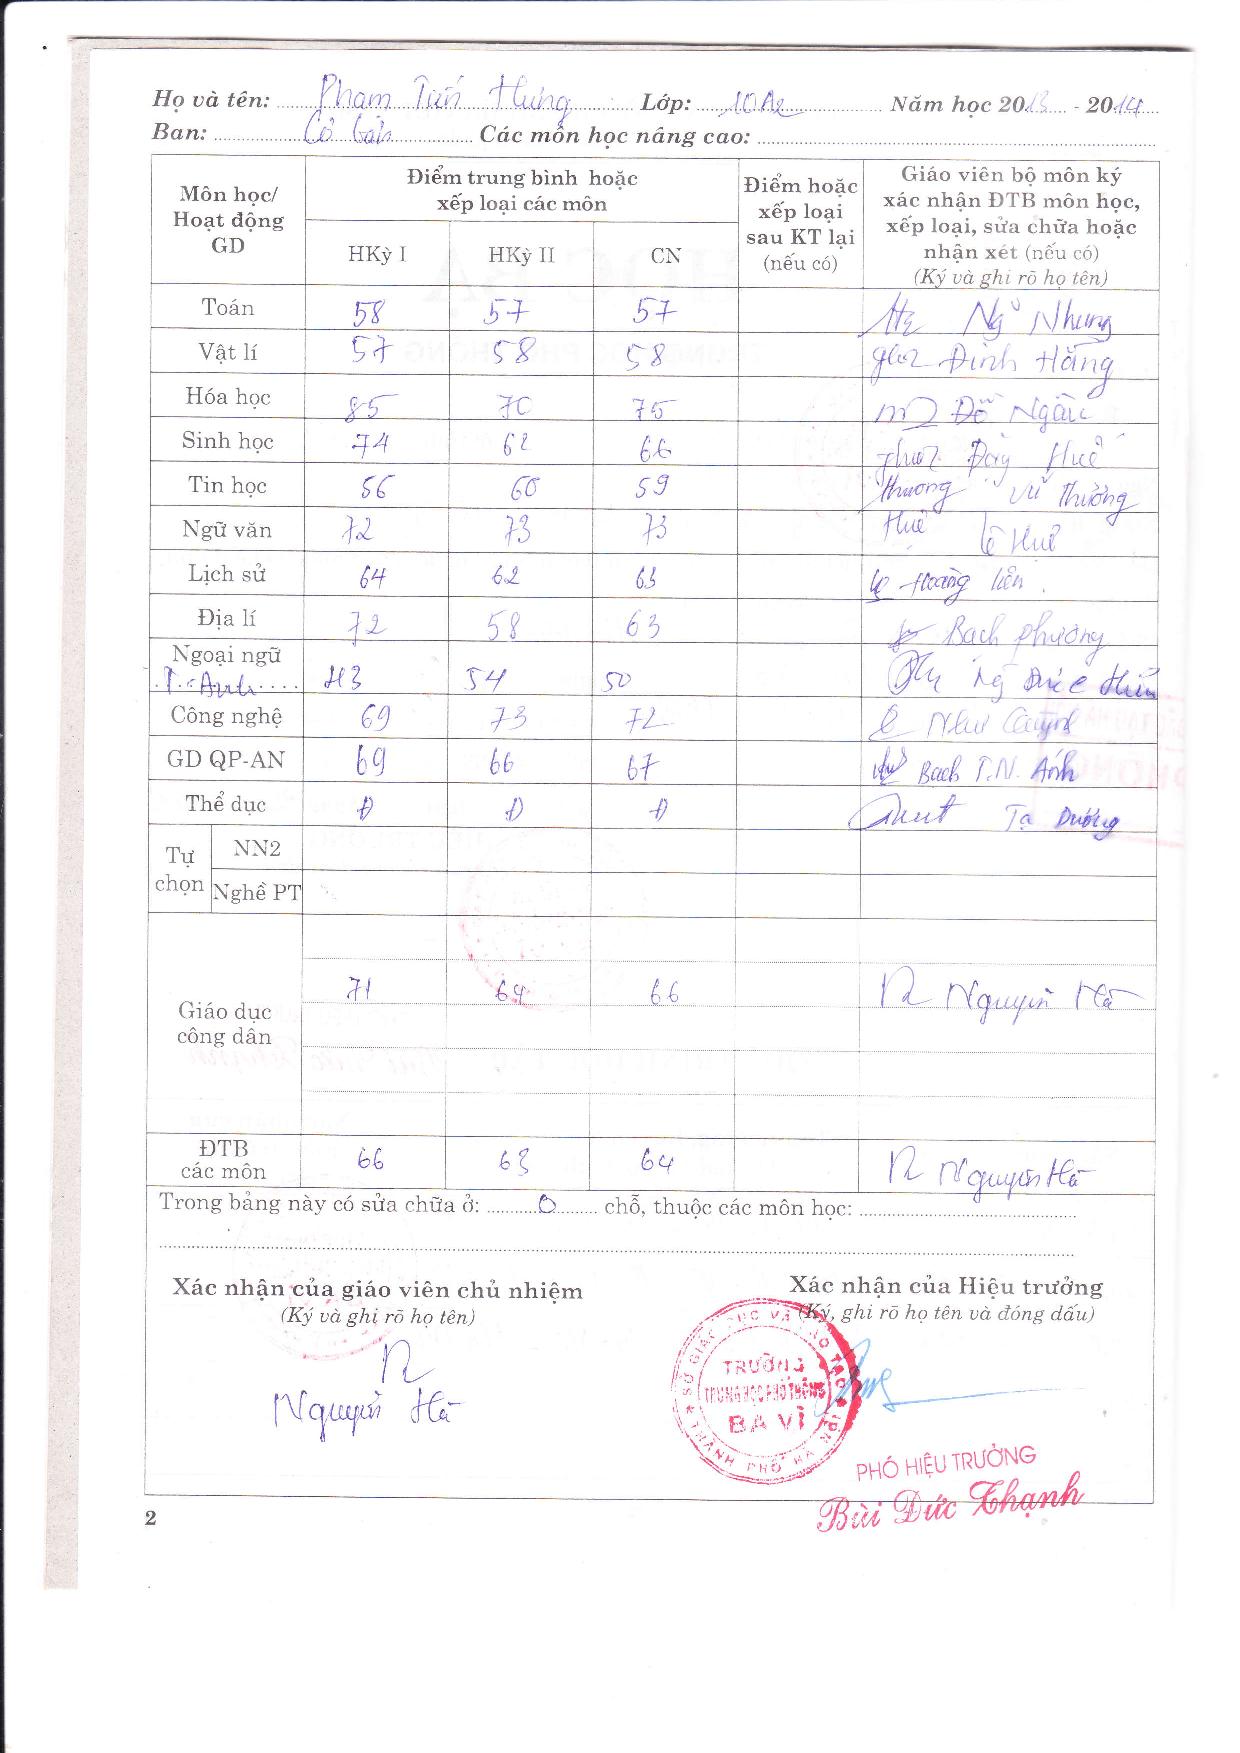 Họ và tên: Phạm Tuấn Hưng Lớp: 10A2 Năm học 2013 - 2014
Ban: Cơ bản Các môn học nâng cao:
Môn học/ Hoạt động GD
Điểm trung bình hoặc xếp loại các môn
Điểm hoặc xếp loại sau KT lại (nếu có)
Giáo viên bộ môn ký xác nhận ĐTB môn học, xếp loại, sửa chữa hoặc nhận xét (nếu có) (Ký và ghi rõ họ tên)
HKỳ I HKỳ II CN
Toán 58 57 57 Nhung
Vật lí 57 58 58 Đinh Hằng
Hóa học 85 70 75 Đỗ
Sinh học 74 62 66 Huế
Tin học 56 60 59 Thương Vũ Thương
Ngữ văn 72 73 73 Huê Lê Huê
Lịch sử 64 62 63 Hoàng Liên
Địa lí 72 58 63 Bạch Phương
Ngoại ngữ
T. Anh 43 54 50 Đức
Công nghệ 69 73 72 Như Quỳnh
GD QP-AN 69 66 67 Bạch T.N. Ánh
Thể dục Đ Đ Đ Tạ Dương
Tự chọn NN2
Nghề PT
Giáo dục công dân 71 64 66 Nguyễn Hà
ĐTB các môn 66 63 64 Nguyễn Hà
Trong bảng này có sửa chữa ở: 0 chỗ, thuộc các môn học:
Xác nhận của giáo viên chủ nhiệm Xác nhận của Hiệu trưởng
(Ký và ghi rõ họ tên) (Ký, ghi rõ họ tên và đóng dấu)
SỞ GIÁO DỤC VÀ ĐÀO TẠO
TRƯỜNG
TRUNG HỌC PHỔ THÔNG
BA VÌ
THÀNH PHỐ HÀ NỘI
Nguyễn Hà
PHÓ HIỆU TRƯỞNG
Bùi Đức Thạnh
2